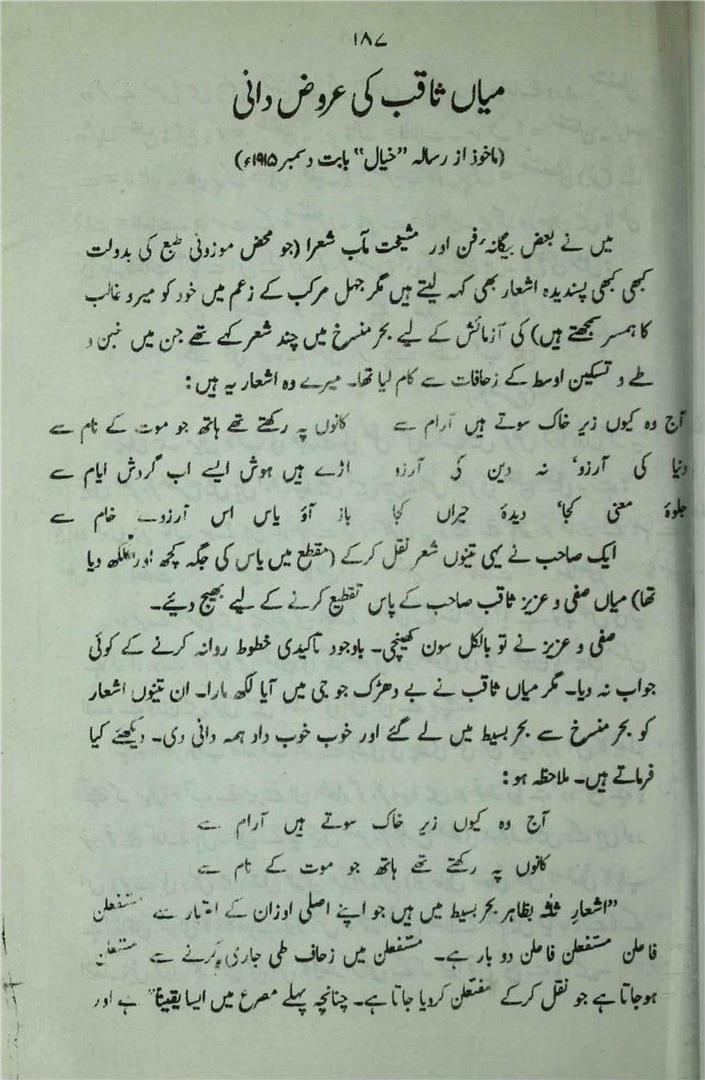 ۱۸۷
میاں ثاقب کی عروض دانی
(ماخوذ از رسالہ "خیال" بابت دسمبر ۱۹۱۵ء)
میں نے بعض بیگانہء فن اور مشیخت مآب شعرا (جو محض موزونی طبع کی بدولت
کبھی کبھی پسندیدہ اشعار بھی کہہ لیتے ہیں مگر جہل مرکب کے زعم میں خود کو میر و غالب
کا ہمسر سمجھتے ہیں) کی آزمائش کے لیے بحر منسرخ میں چند شعر کہے تھے جن میں خبن و
طے و تسکین اوسط کے زحافات سے کام لیا تھا۔ میرے وہ اشعار یہ ہیں:
آج وہ کیوں زیر خاک سوتے ہیں آرام سے کانوں پہ رکھتے تھے ہاتھ جو موت کے نام سے
دنیا کی آرزو' نہ دین کی آرزو اڑے ہیں ہوش ایسے اب گردش ایام سے
جلوۂ معنی کجا' دیدۂ حیراں کجا باز آؤ یاس اس آرزوے خام سے
ایک صاحب نے یہی تینوں شعر نقل کرکے (مقطع میں یاس کی جگہ کچھ اور لکھ دیا
تھا) میاں صفی و عزیز ثاقب صاحب کے پاس تقطیع کرنے کے لیے بھیج دیئے۔
صفی و عزیز نے تو بالکل سون کھینچی۔ باوجود تاکیدی خطوط روانہ کرنے کے کوئی
جواب نہ دیا۔ مگر میاں ثاقب نے بے دھڑک جو جی میں آیا لکھ مارا۔ ان تینوں اشعار
کو بحر منسرخ سے بحر بسیط میں لے گئے اور خوب خوب داد ہمہ دانی دی۔ دیکھئے کیا
فرماتے ہیں۔ ملاحظہ ہو:
آج وہ کیوں زیر خاک سوتے ہیں آرام سے
کانوں پہ رکھتے تھے ہاتھ جو موت کے نام سے
"اشعارِ ثلٰثہ بظاہر بحر بسیط میں ہیں جو اپنے اصلی اوزان کے اعتبار سے مستفعلن
فاعلن مستفعلن فاعلن دو بار ہے۔ مستفعلن میں زحاف طی جاری کرنے سے مستعلن
ہوجاتا ہے جو نقل کرکے مفتعلن کردیا جاتا ہے۔ چنانچہ پہلے مصرع میں ایسا یقیناً ہے اور